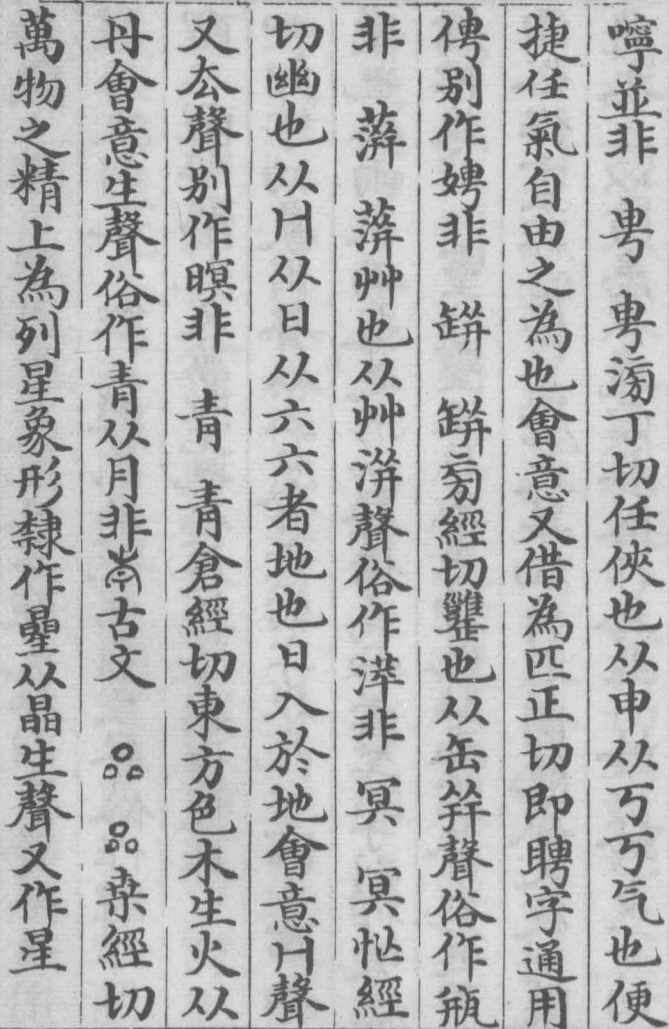 嚀並非　甹　甹滂丁切任俠也从申从丂丂气也便
捷任氣自由之為也會意又借為匹正切即聘字通用
俜别作娉非　缾　缾旁經切罋也从缶并聲俗作瓶
非　蓱　蓱艸也从艸洴聲俗作萍非　冥　冥忙經
切幽也从冂从日从六六者地也日入於地會意冂聲
又厷聲别作暝非　青　青倉經切東方色木生火从
丹會意生聲俗作青从月非古文　桒經切
萬物之精上為列星象形隸作曐从晶生聲又作星